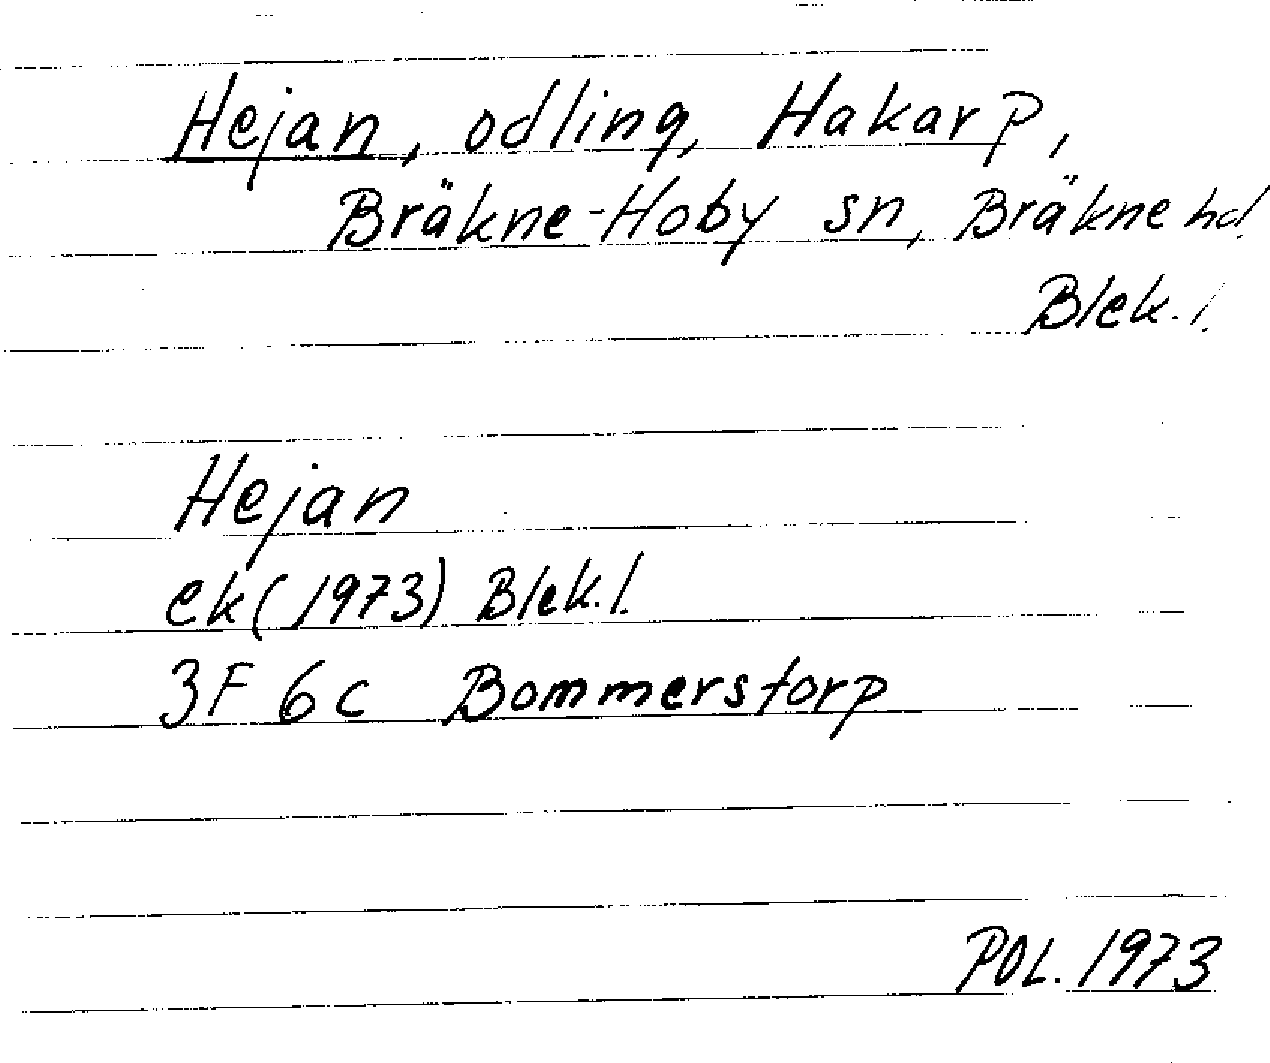 Hejan, odling, Hakarp,
Bräkne-Hoby sn, Bräkne hd.
Blek. l.
Hejan
ek (1973) Blek. l.
3F 6c Bommerstorp
POL. 1973